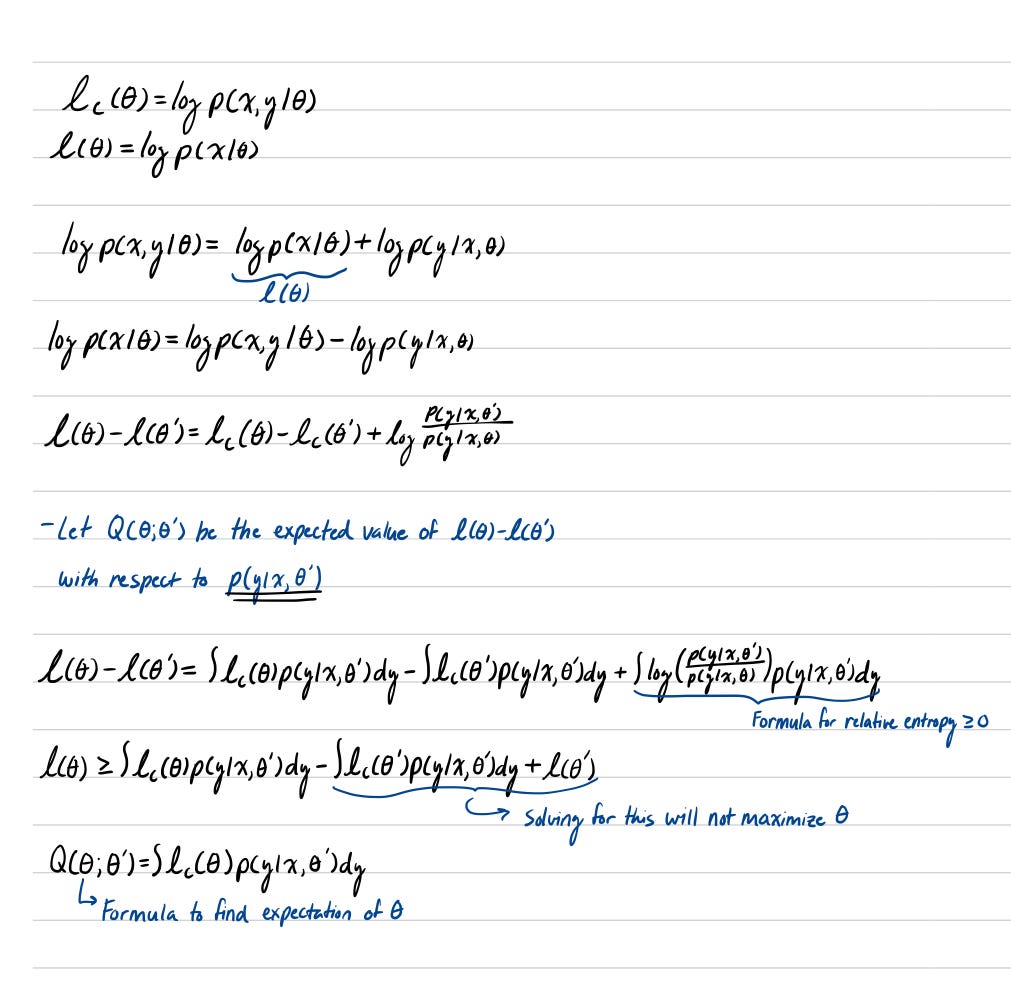 l_c(θ)=log p(x,y|θ)
l(θ)=log p(x|θ)
log p(x,y|θ)= log p(x|θ)+log p(y|x,θ)
l(θ)
log p(x|θ)=log p(x,y|θ)-log p(y|x,θ)
l(θ)-l(θ')=l_c(θ)-l_c(θ')+log p(y|x,θ')/p(y|x,θ)
-Let Q(θ;θ') be the expected value of l(θ)-l(θ')
with respect to p(y|x,θ')
l(θ)-l(θ')=∫l_c(θ)p(y|x,θ')dy-∫l_c(θ')p(y|x,θ')dy+∫log(p(y|x,θ')/p(y|x,θ))p(y|x,θ')dy
Formula for relative entropy ≥0
l(θ)≥∫l_c(θ)p(y|x,θ')dy-∫l_c(θ')p(y|x,θ')dy+l(θ')
→ Solving for this will not maximize θ
Q(θ;θ')=∫l_c(θ)p(y|x,θ')dy
↳ Formula to find expectation of θ